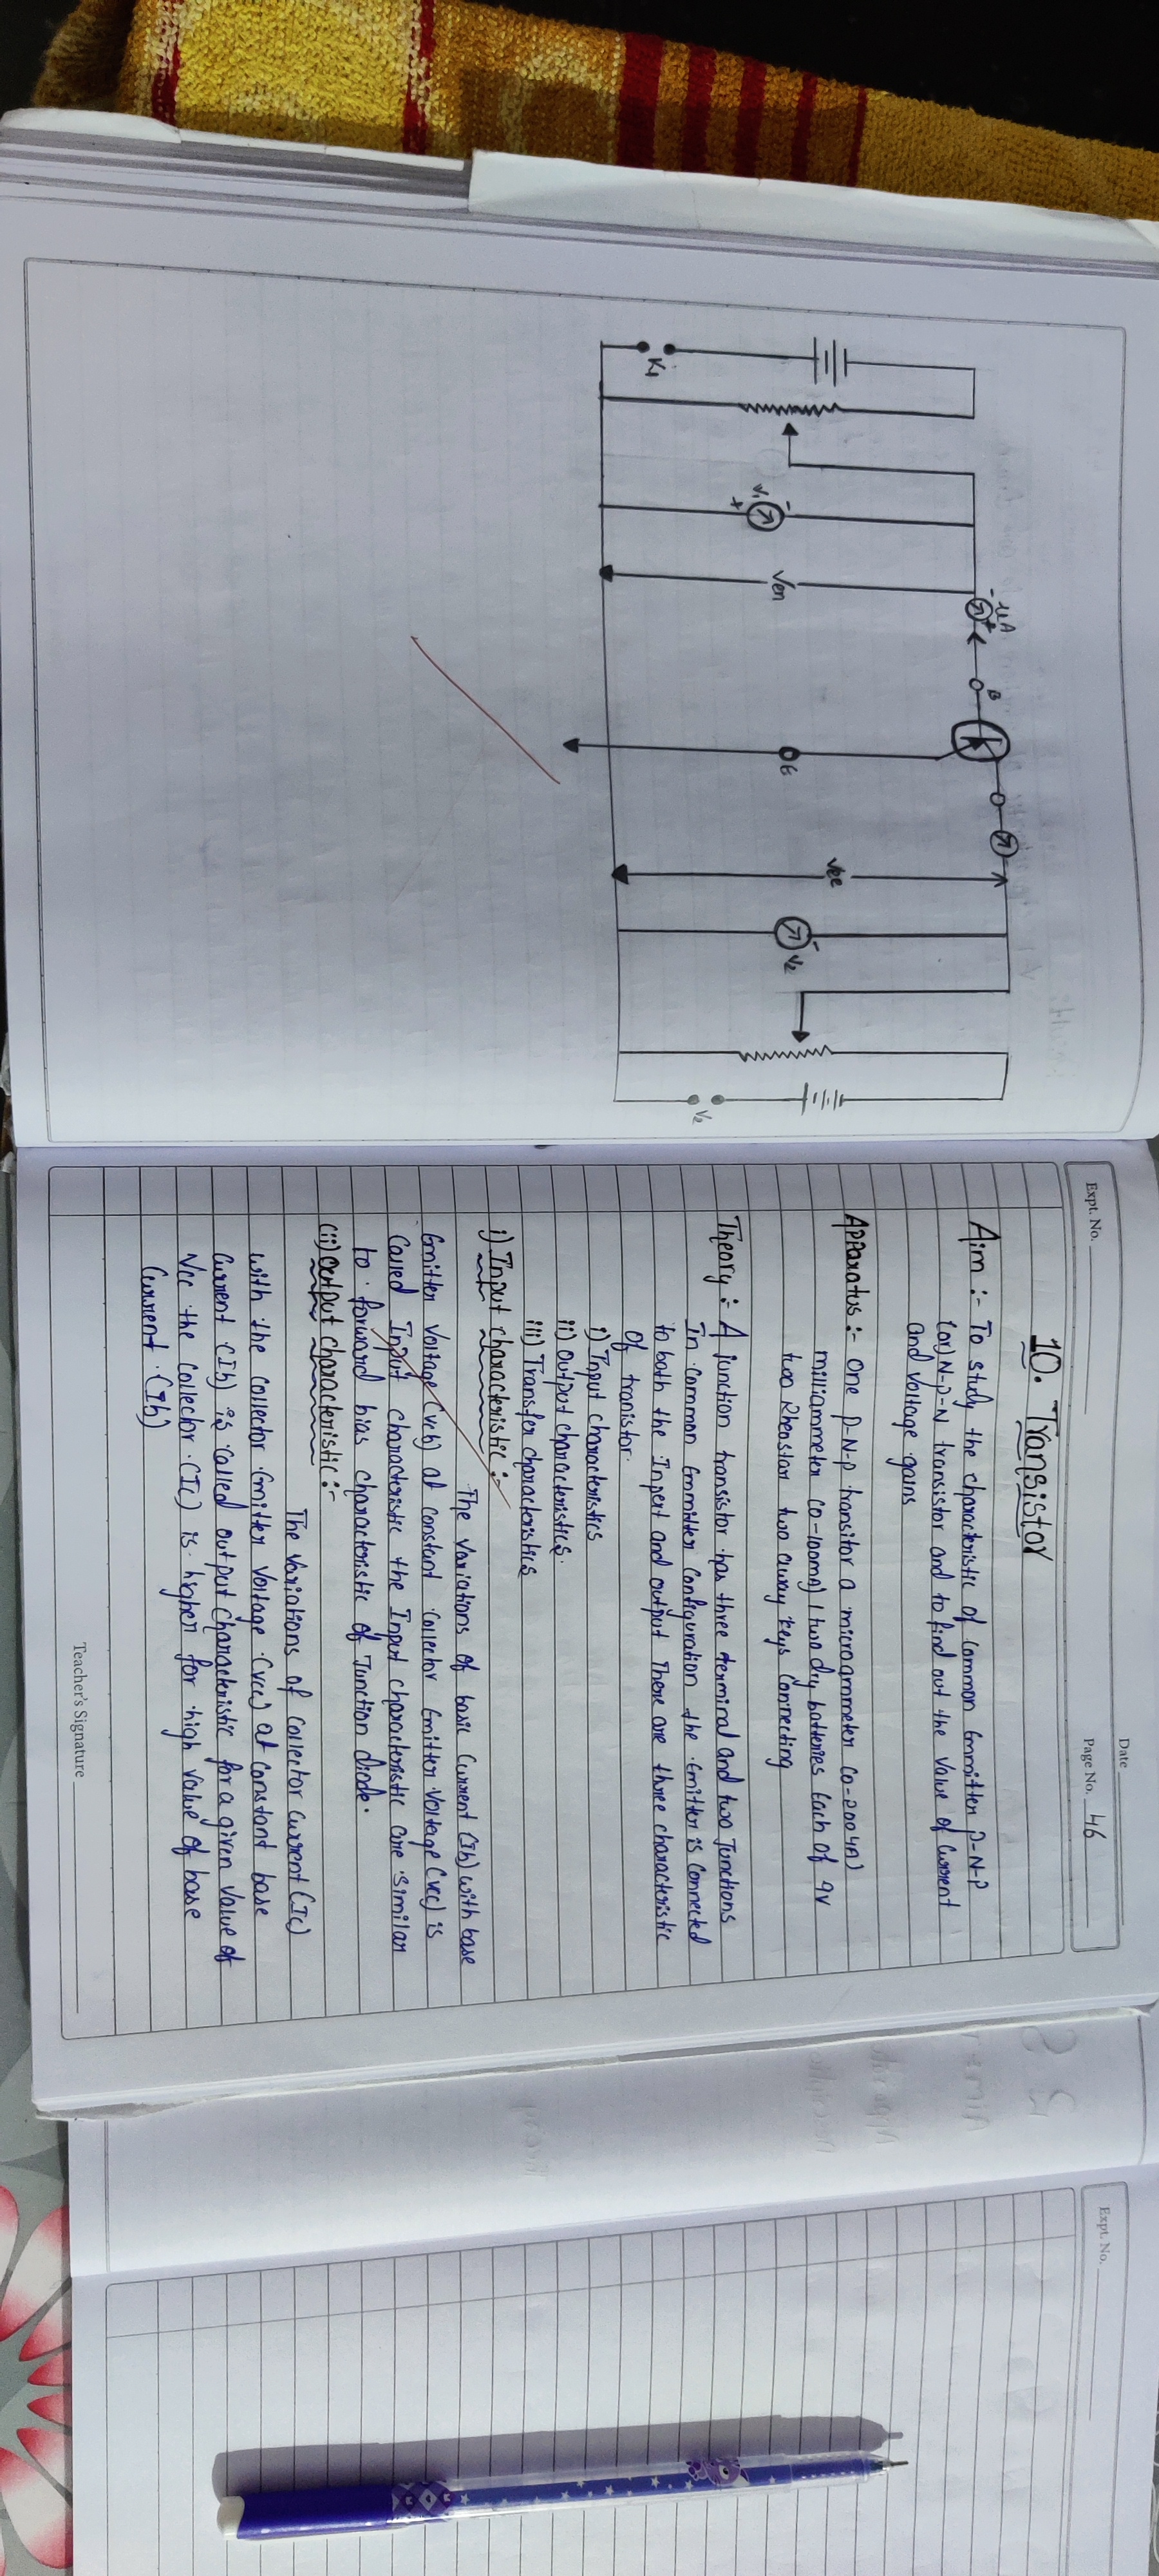 K1
V1
+
-
Ven
- μA +
B
G
Vee
-
V2
V2
Expt. No.
Date
Page No. 46
10. Transistor
Aim :- To study the characteristic of common Emmitter P-N-P
(or) N-P-N transistor and to find out the value of current
and voltage gains
Apparatus :- one P-N-P transitor a microgmmeter Co-2004A)
milliammeter Co-100mA) 1 two dry batteries Each of 9v
two Rheostar two away keys connecting
Theory : A junction transistor has three terminal and two Junctions
In common Emmitter configuration the Emitter is connected
to both the Inpert and output There are three characteristic
of tranistor.
i) Input characteristics
ii) output characteristics.
iii) Transfer characteristics
i) Input characteristic :-
The variations of basic current (Ib) with base
Emitter voltage (Vb) at constant collector Emitter voltage (vcc) is
Called Input characteristic the Input characteristic are similar
to forward bias characteristic of Junction diode.
(ii) output characteristic :-
The variations of collector current (Ic)
with the collector Emitter voltage (vcc) at constant base
current (Ib) is called output characteristic for a given value of
Vcc the collector (Ic) is higher for high value of base
Current (Ib)
Teacher's Signature
Expt. No.